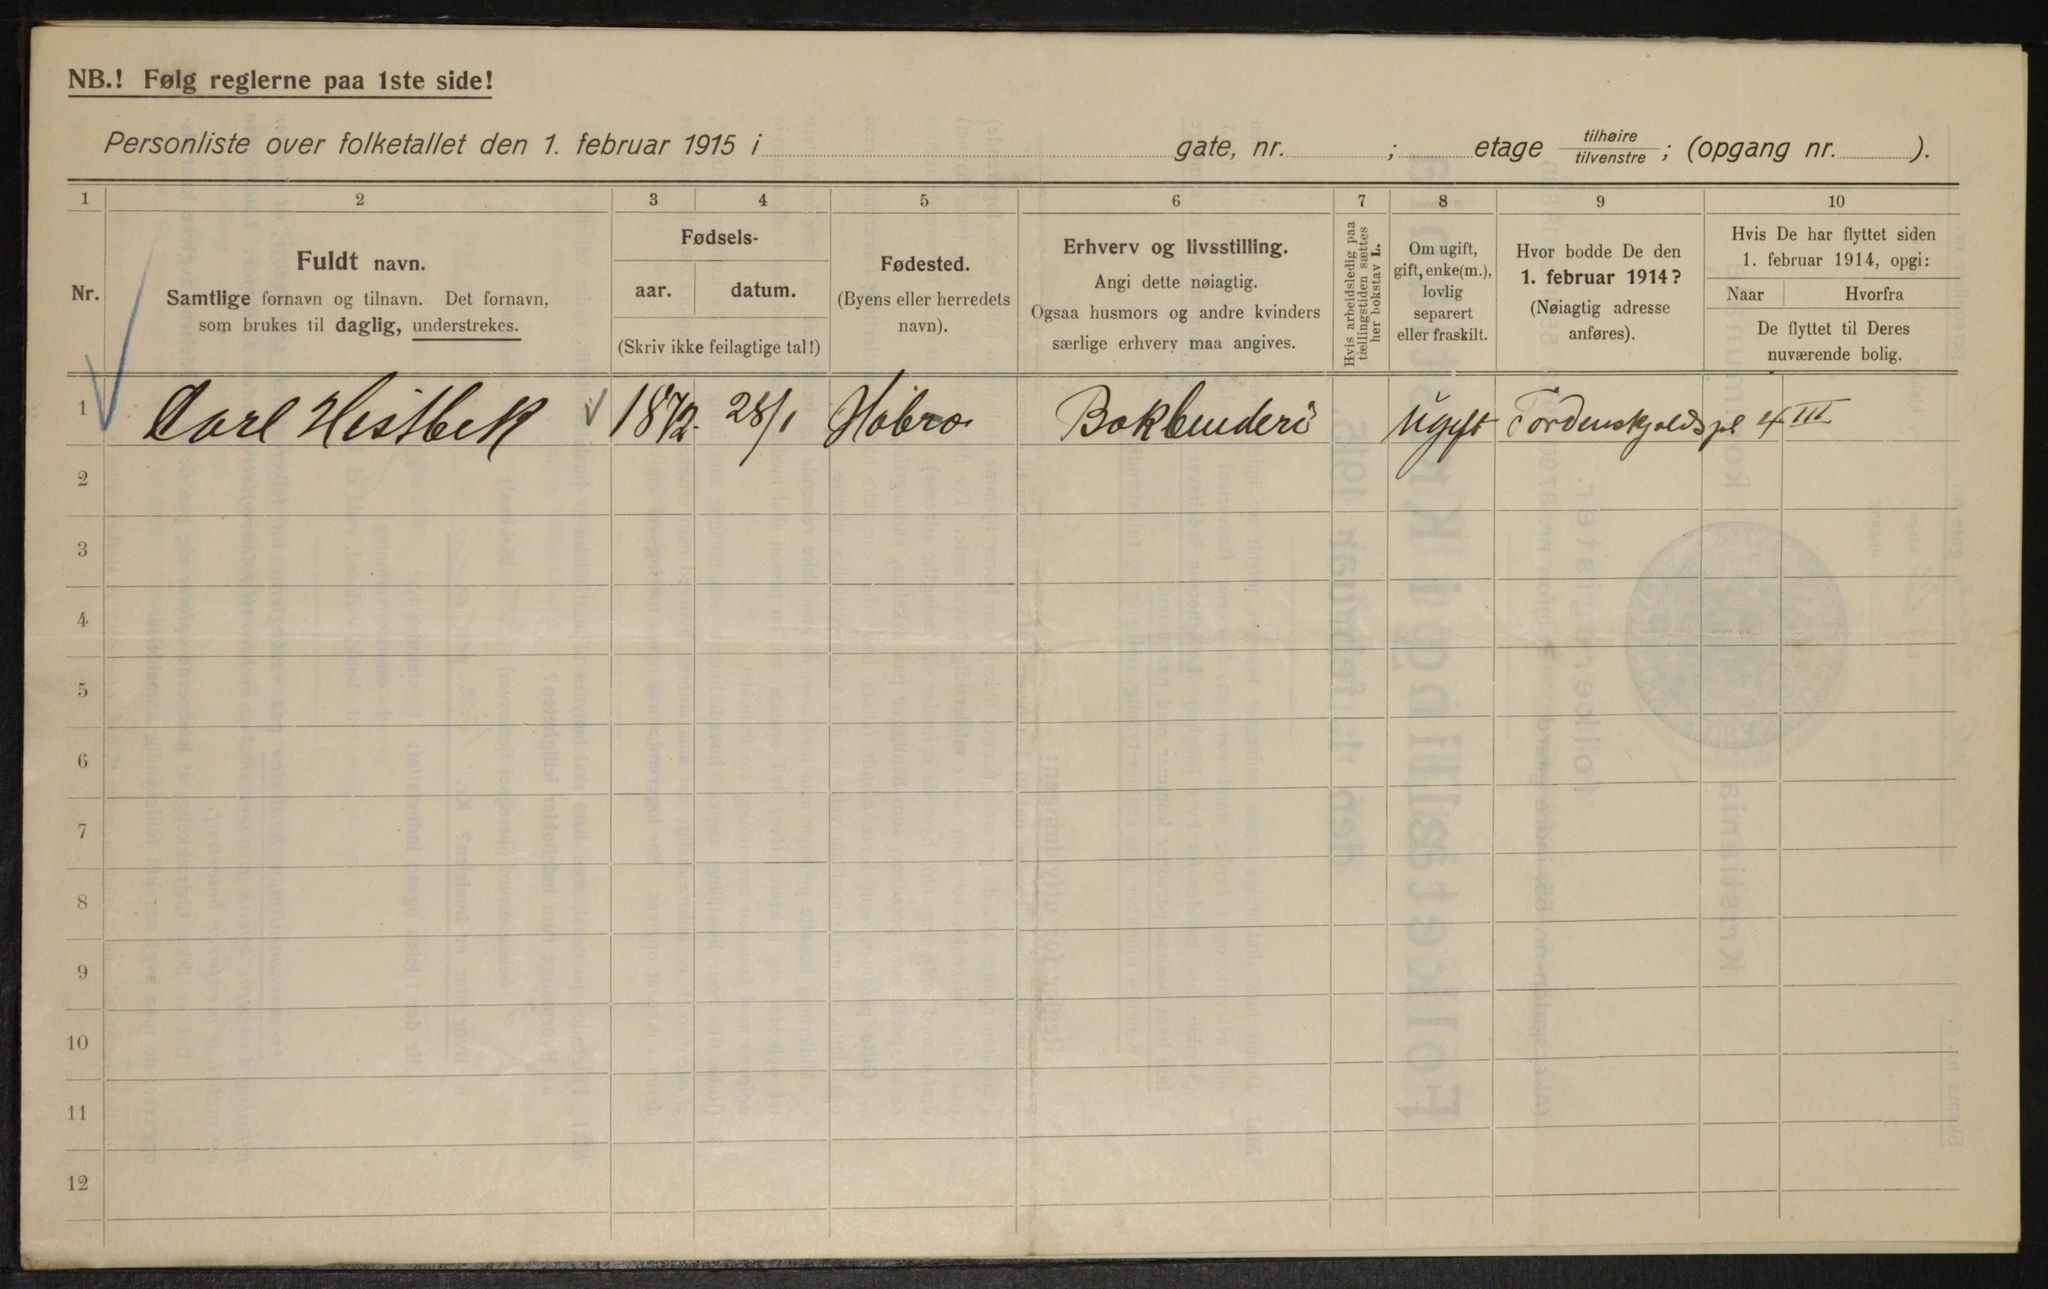 NB.! Følg reglerne paa 1ste side!
Personliste over folketallet den 1. februar 1915 i gate, nr. ; etage tilhøire/tilvenstre ; (opgang nr. ).
1 2 3 4 5 6 7 8 9 10
Nr.
Fuldt navn.
Samtlige fornavn og tilnavn. Det fornavn,
som brukes til daglig, understrekes.
Fødsels-
aar. datum.
(Skriv ikke feilagtige tal!)
Fødested.
(Byens eller herredets
navn).
Erhverv og livsstilling.
Angi dette nøiagtig.
Ogsaa husmors og andre kvinders
særlige erhverv maa angives.
Hvis arbeidsledig paa
tællingstiden sættes
her bokstav L.
Om ugift,
gift, enke(m.),
lovlig
separert
eller fraskilt.
Hvor bodde De den
1. februar 1914?
(Nøiagtig adresse
anføres).
Hvis De har flyttet siden
1. februar 1914, opgi:
Naar Hvorfra
De flyttet til Deres
nuværende bolig.
1 Carl Hestbek 1872. 28/1 Hobro Bokbinderi ugift Tordenskjoldspl 4 III
2
3
4
5
6
7
8
9
10
11
12